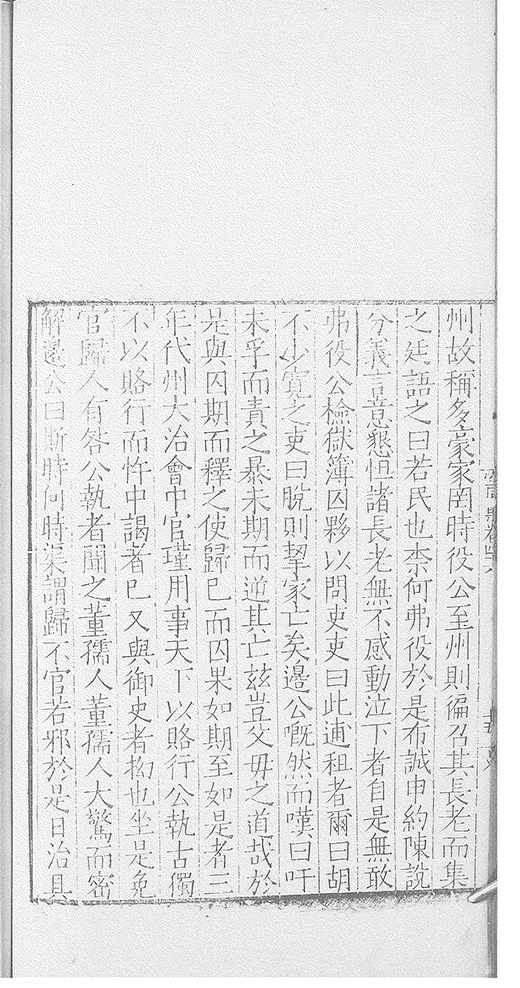 州故稱多豪家罔時役公至州則徧召其長老而集
之廷語之曰若民也柰何弗役於是布誠申約陳說
分義言意懇怛諸長老無不感動泣下者自是無敢
弗役公檢獄簿囚夥以問吏吏曰此逋租者爾曰胡
不少寬之吏曰脫則挈家亡矣邉公慨然而嘆曰吁
未孚而責之暴未期而逆其亡兹豈父毋之道哉於
是與囚期而釋之使歸已而囚果如期至如是者三
年代州大治會中官瑾用事天下以賂行公執古獨
不以賂行而忤中謁者已又與御史者抝也坐是免
官歸人有咎公執者聞之董孺人董孺人大驚而密
解邉公曰斯時何時渠謂歸不官若邪於是日治具